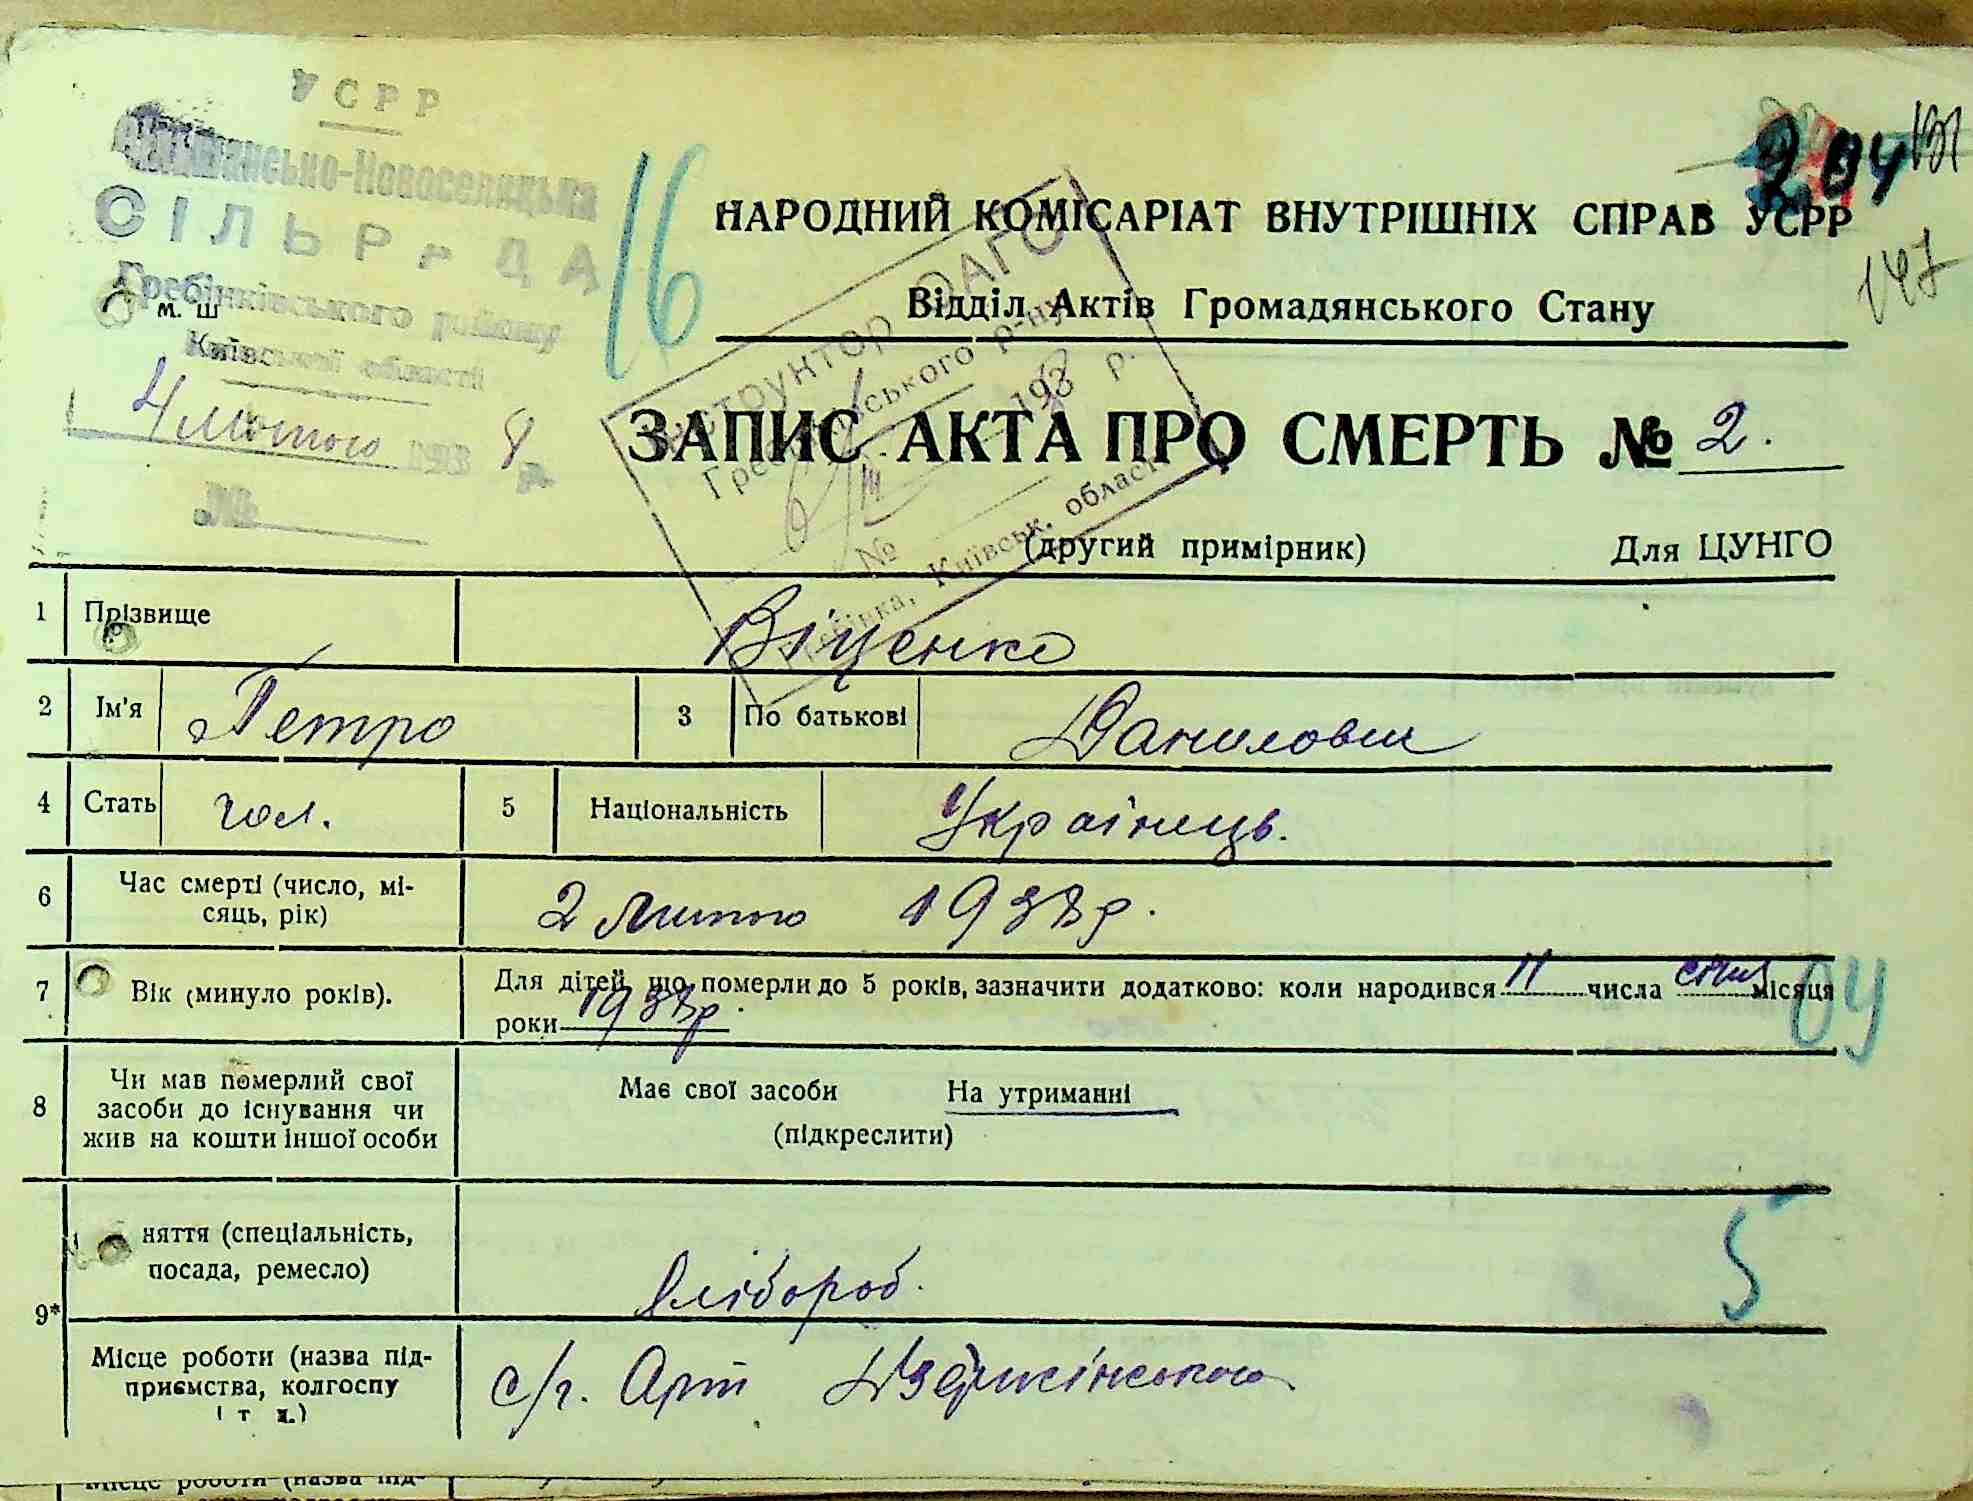 УСРР
Новоселицька
СІЛЬРАДА
Гребінківського району
Київської області
4 лютого 1938 р.
№
м. ш
16
204
131
147
НАРОДНИЙ КОМІСАРІАТ ВНУТРІШНІХ СПРАВ УСРР
Відділ Актів Громадянського Стану
Інструктор ОАГС
Гребінківського р-ну
193 р.
№
Гребінка, Київськ. області
ЗАПИС АКТА ПРО СМЕРТЬ № 2.
(другий примірник) Для ЦУНГО
1 Прізвище Віценко
2 Ім'я Петро 3 По батькові Данилович
4 Стать чол. 5 Національність Українець.
6 Час смерті (число, мі-
сяць, рік) 2 лютого 1938 р.
7 Вік (минуло років). Для дітей, що померли до 5 років, зазначити додатково: коли народився 11 числа січня місяця
роки 1938 р.
04
8 Чи мав померлий свої
засоби до існування чи
жив на кошти іншої особи
Має свої засоби На утриманні
(підкреслити)
9* няття (спеціальність,
посада, ремесло) хлібороб.
5
Місце роботи (назва під-
приємства, колгоспу
і т д.) с/г. Арт Дзержінського
Місце роботи (назва під-